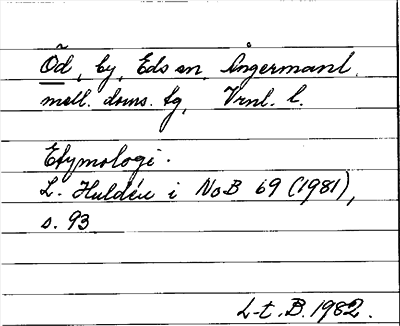 Öd, by, Eds sn, Ångermanl.
mell. doms. tg, Vrnl. l.
Etymologi.
L. Huldén i NoB 69 (1981),
s. 93
L-t. B. 1982.